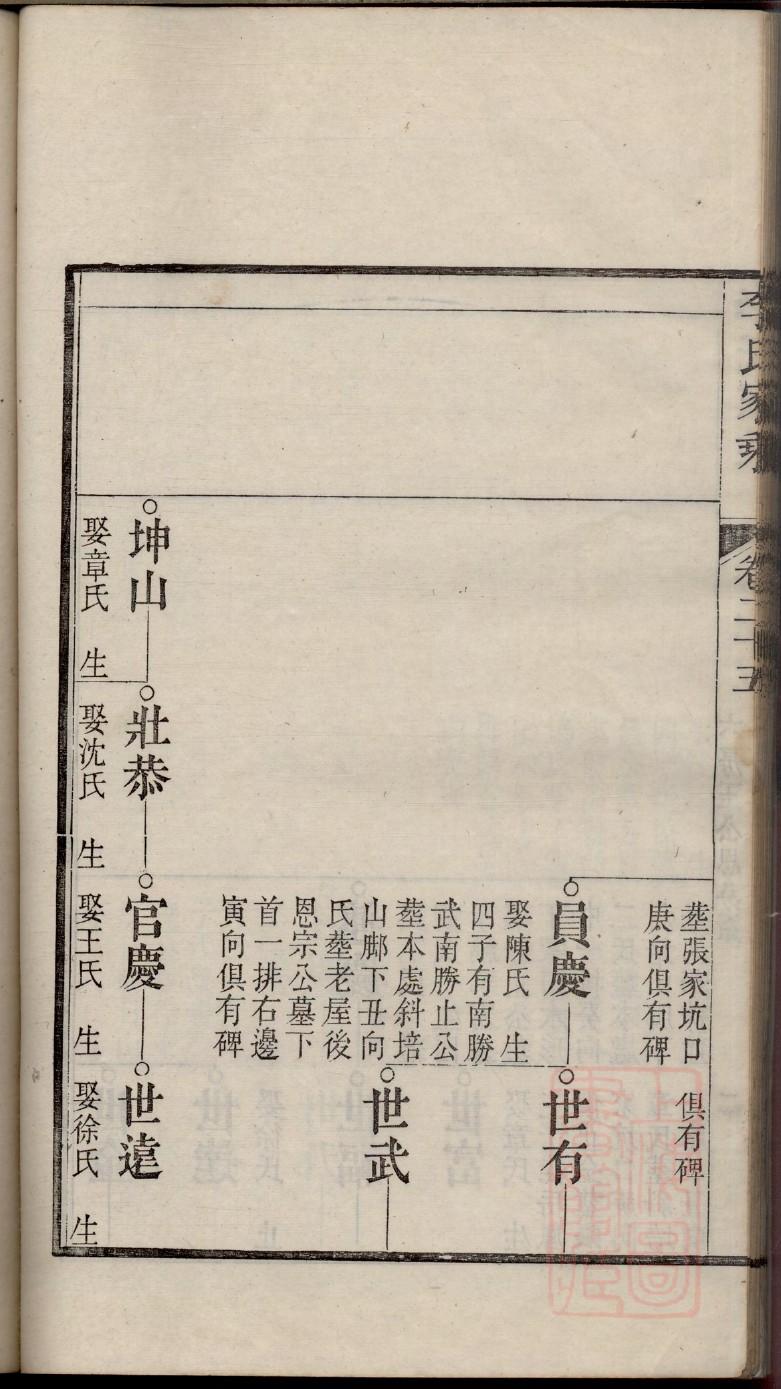 李氏家乘
卷二十五
塟張家坑口
庚向俱有碑
俱有碑
員慶
娶陳氏 生
四子有南勝
武南勝止公
塟本處斜培
山邮下丑向
氏塟老屋後
恩宗公墓下
首一排右邊
寅向俱有碑
世有
世武
坤山
娶章氏 生
壯恭
娶沈氏 生
官慶
娶王氏 生
世遠
娶徐氏 生